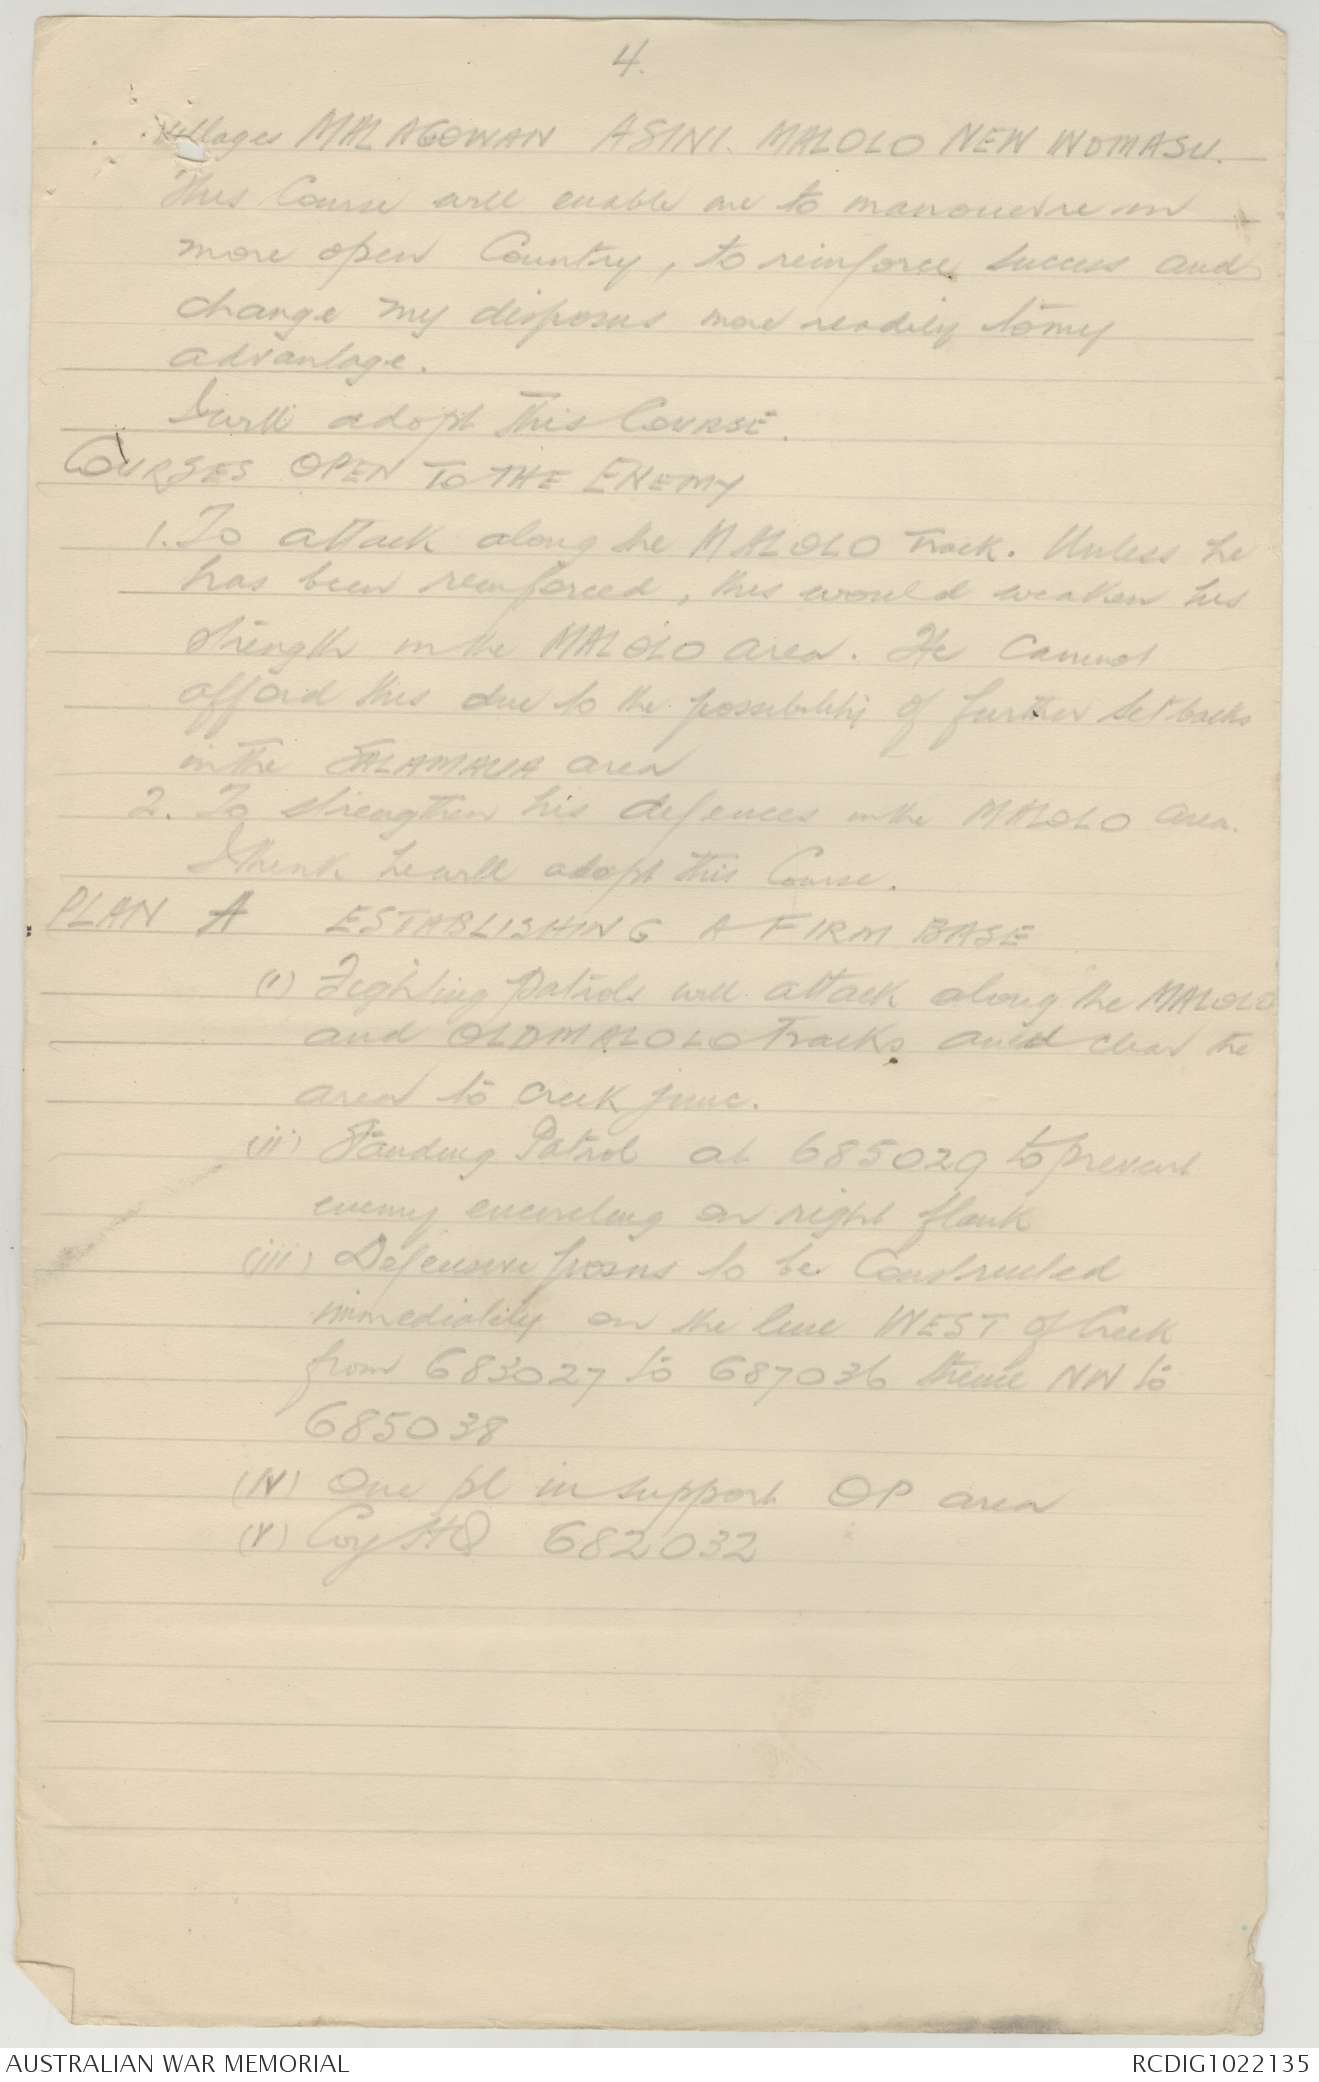 4.
Villages MALAGOWAN ASINI. MALOLO NEW WOMASU.
This Course will enable me to manoeuvre in
more open Country, to reinforce success and
change my disposns more readily to my
advantage.
I will adopt this COURSE.
COURSES OPEN TO THE ENEMY
1. To attack along the MALOLO Track. Unless he
has been reinforced, this would weaken his
strength in the MALOLO area. He cannot
afford this due to the possibility of further setbacks
in the SALAMAUA area
2. To strengthen his defences in the MALOLO area.
I think he will adopt this Course.
PLAN A ESTABLISHING A FIRM BASE
(i) Fighting Patrols will attack along the MALOLO
and OLDMALOLO Tracks and clear the
area to creek junc.
(ii) Standing Patrol at 685029 to prevent
enemy encircling on right flank
(iii) Defensive posns to be Constructed
immediately on the line WEST of Creek
from 683027 to 687036 thence NW to
685038
(IV) One pl in support OP area
(V) Coy HQ 682032
AUSTRALIAN WAR MEMORIAL
RCDIG1022135